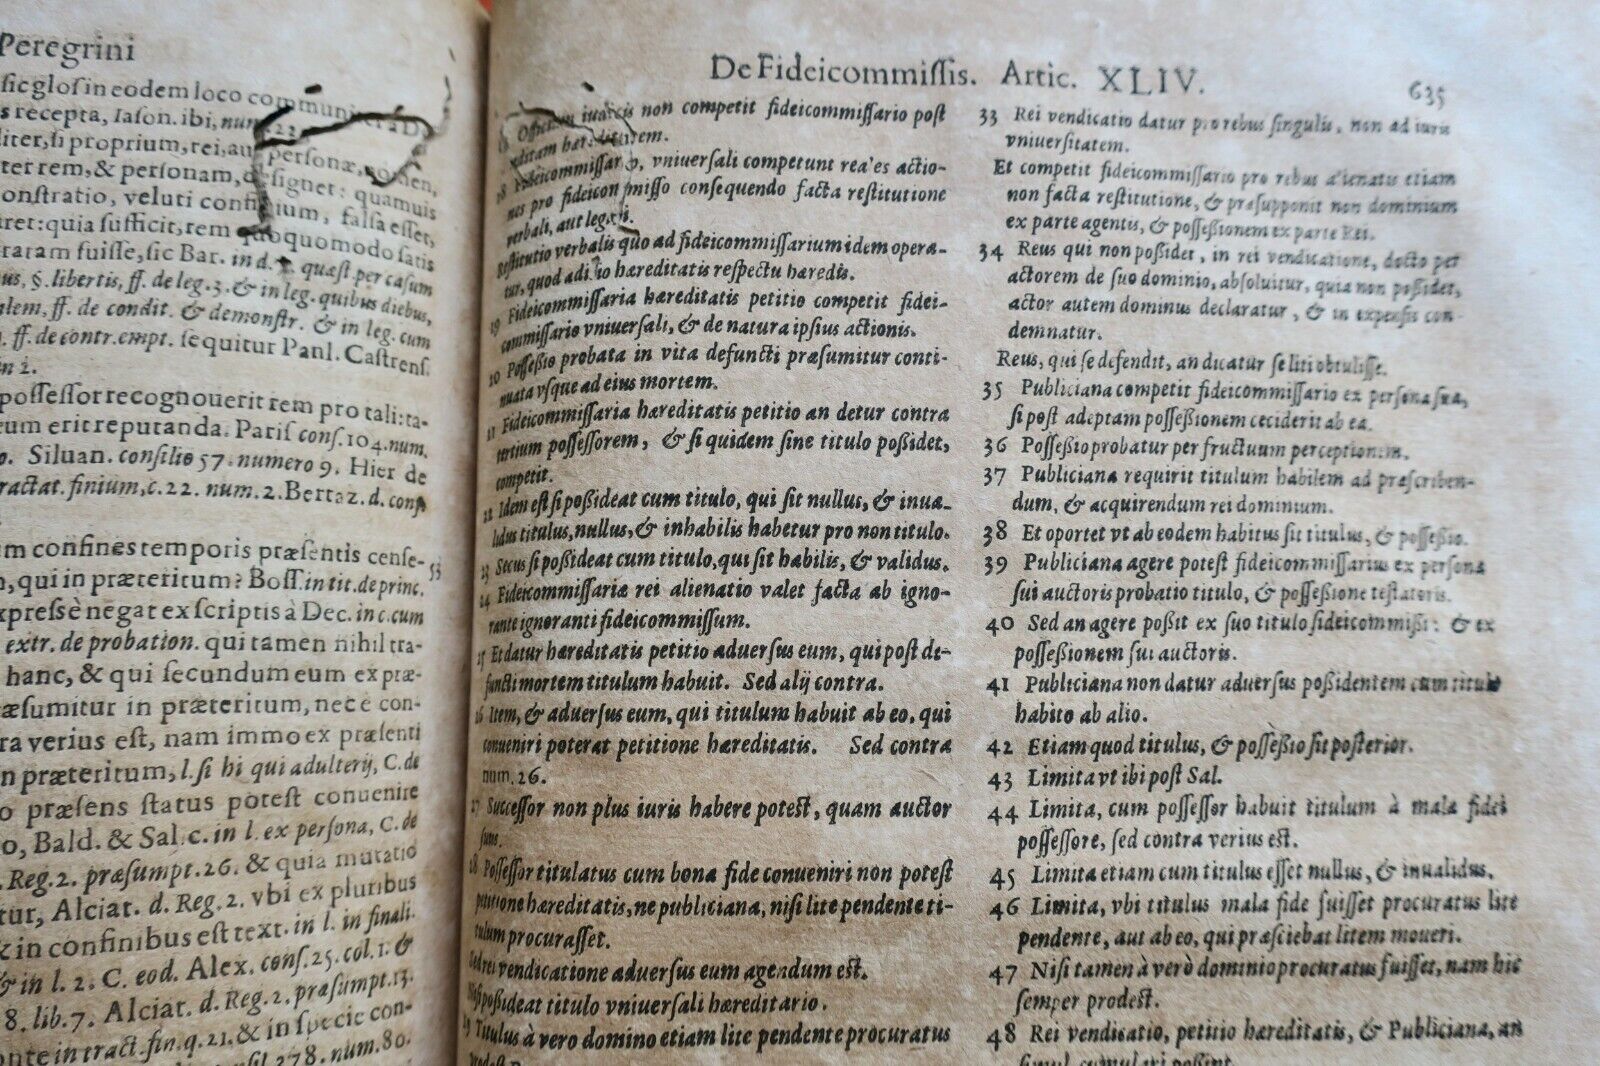 Peregrini
sic glos in eodem loco communiter à D
s recepta, Iason. ibi, num. 22.
liter, si proprium, rei, aut personæ, nomen,
ter rem, & personam, designet: quamuis
onstratio, veluti confinium, falsa esset,
ret: quia sufficit, rem quoquomodo satis
traram fuisse, sic Bar. in d. quæst. per casum
us, §. libertis, ff. de leg. 3. & in leg. quibus diebus,
alem, ff. de condit. & demonstr. & in leg. cum
. ff. de contr. empt. sequitur Paul. Castrens.
n 2.
possessor recognouerit rem pro tali: ta-
eum erit reputanda. Paris cons. 104. num.
o. Siluan. consilio 57. numero 9. Hier de
ractat. finium, c. 22. num. 2. Bertaz. d. cons
um confines temporis præsentis cense- 53
o, qui in præteritum? Boss. in tit. de princ.
xpressè negat ex scriptis à Dec. in c. cum
extr. de probation. qui tamen nihil tra-
hanc, & qui secundum eum ex præ-
æsumitur in præteritum, nec è con-
ra verius est, nam immo ex præsenti
n præteritum, l. si hi qui adulterij, C. de
o præsens status potest conuenire
o, Bald. & Sal. c. in l. ex persona, C. de
. Reg. 2. præsumpt. 26. & quia mutatio
tur, Alciat. d. Reg. 2. vbi ex pluribus
& in confinibus est text. in l. in finali.
& in l. 2. C. eod. Alex. cons. 25. col. 1. &
8. lib. 7. Alciat. d. Reg. 2. præsumpt. 13.
onte in tract. fin. q. 21. & in specie con-
sil 278. num. 80.
De Fideicommissis. Artic. XLIV. 635
Officium iudicis non competit fideicommissario post
aditam hæreditatem.
18 Fideicommissario, vniuersali competunt reales actio-
nes pro fideicommisso consequendo facta restitutione
verbali, aut legalis.
Restitutio verbalis quo ad fideicommissarium idem opera-
tur, quod aditio hæreditatis respectu hæredis.
19 Fideicommissaria hæreditatis petitio competit fidei-
commissario vniuersali, & de natura ipsius actionis.
20 Possessio probata in vita defuncti præsumitur conti-
nuata vsque ad eius mortem.
21 Fideicommissaria hæreditatis petitio an detur contra
tertium possessorem, & si quidem sine titulo poßidet,
competit.
22 Idem est si poßideat cum titulo, qui sit nullus, & inua-
lidus titulus, nullus, & inhabilis habetur pro non titulo.
23 Secus si poßideat cum titulo, qui sit habilis, & validus.
24 Fideicommissariæ rei alienatio valet facta ab igno-
rante ignoranti fideicommissum.
25 Et datur hæreditatis petitio aduersus eum, qui post de-
functi mortem titulum habuit. Sed alij contra.
26 Item, & aduersus eum, qui titulum habuit ab eo, qui
conueniri poterat petitione hæreditatis. Sed contra
num. 26.
27 Successor non plus iuris habere potest, quam auctor
suus.
28 Possessor titulatus cum bona fide conueniri non potest
petitione hæreditatis, ne publiciana, nisi lite pendente ti-
tulum procurasset.
Sed rei vendicatione aduersus eum agendum est.
Nisi poßideat titulo vniuersali hæreditario.
29 Titulus à vero domino etiam lite pendente procuratus
prodest
33 Rei vendicatio datur pro rebus singulis, non ad iuris
vniuersitatem.
Et competit fideicommissario pro rebus alienatis etiam
non facta restitutione, & præsupponit non dominium
ex parte agentis, & poßeßionem ex parte Rei.
34 Reus qui non poßidet, in rei vendicatione, docto per
actorem de suo dominio, absoluitur, quia non poßidet,
actor autem dominus declaratur, & in expensis con-
demnatur.
Reus, qui se defendit, an dicatur se liti obtulisse.
35 Publiciana competit fideicommissario ex persona sua,
si post adeptam possessionem ceciderit ab ea.
36 Possessio probatur per fructuum perceptionem.
37 Publiciana requirit titulum habilem ad præscriben-
dum, & acquirendum rei dominium.
38 Et oportet vt ab eodem habitus sit titulus, & poßeßio.
39 Publiciana agere potest fideicommissarius ex persona
sui auctoris probatio titulo, & possessione testatoris.
40 Sed an agere poßit ex suo titulo fideicommißi: & ex
possessionem sui auctoris.
41 Publiciana non datur aduersus poßidentem cum titulo
habito ab alio.
42 Etiam quod titulus, & poßeßio sit posterior.
43 Limita vt ibi post Sal.
44 Limita, cum possessor habuit titulum à mala fidei
possessore, sed contra verius est.
45 Limita etiam cum titulus esset nullus, & inualidus.
46 Limita, vbi titulus mala fide fuisset procuratus lite
pendente, aut ab eo, qui præsciebat litem moueri.
47 Nisi tamen à verò domino procuratus fuisset, nam hic
semper prodest.
48 Rei vendicatio, petitio hæreditatis, & Publiciana, an
simul cumulari possint.